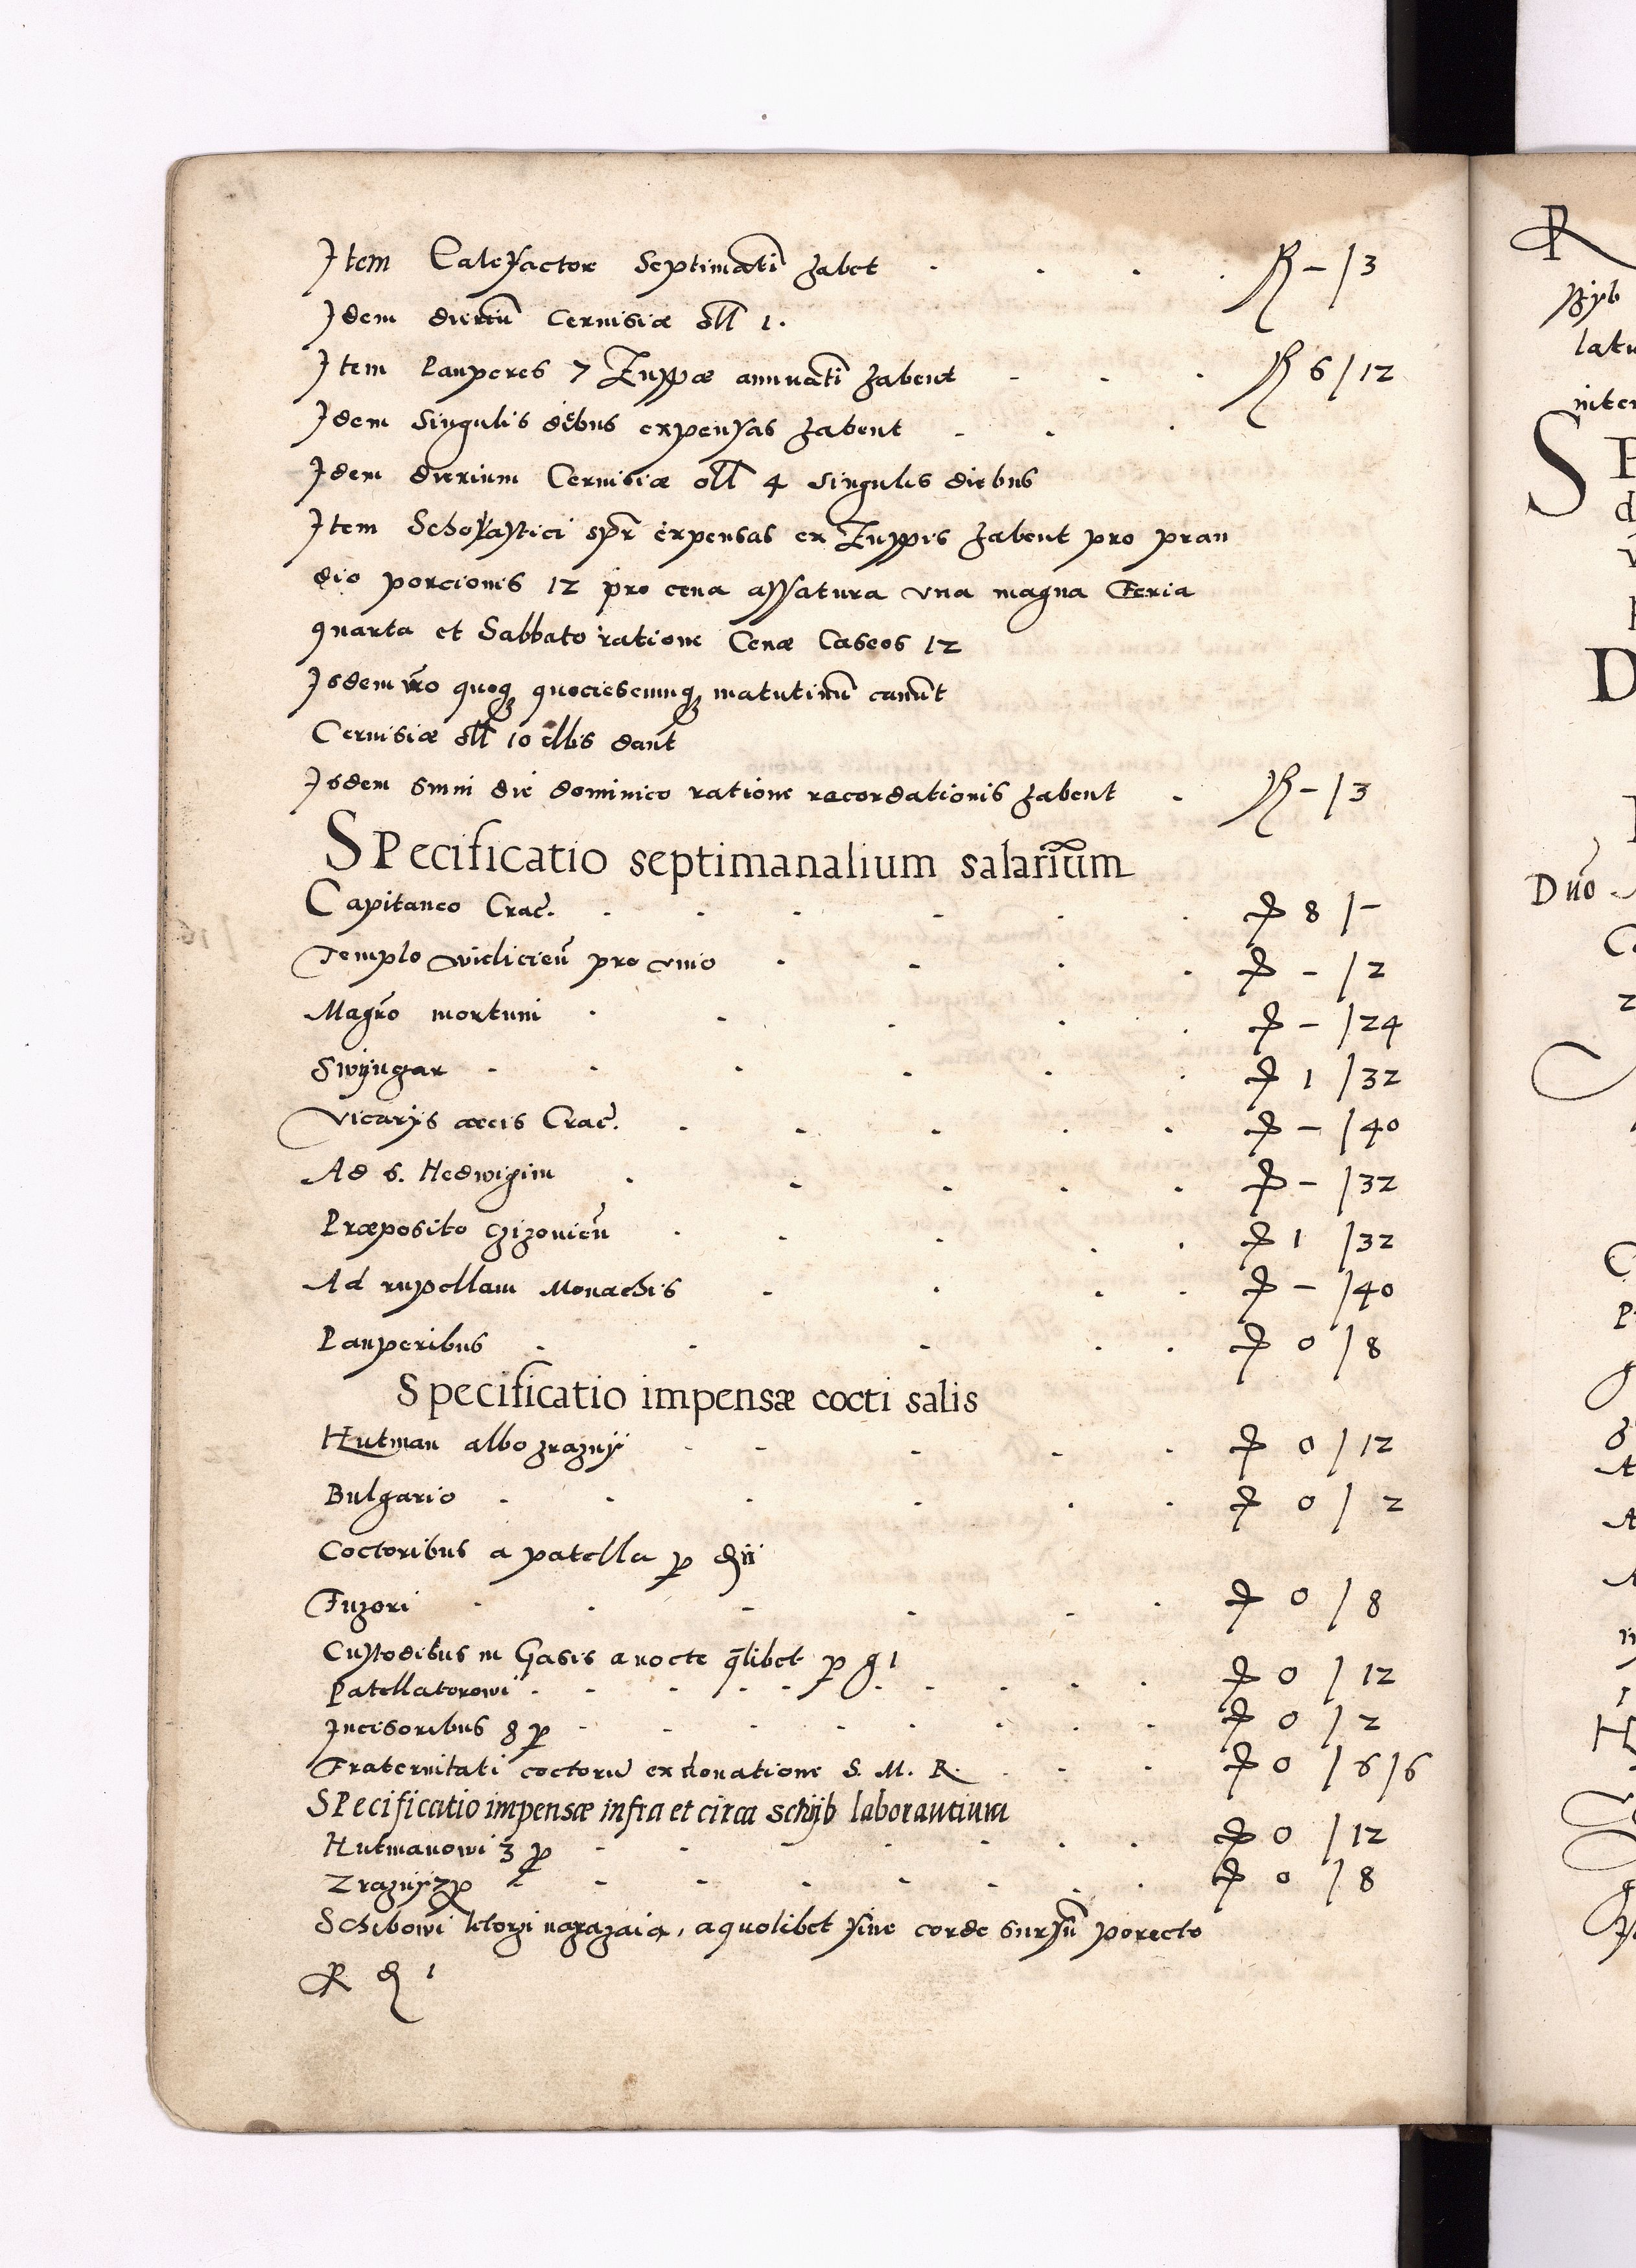 Item Calefactor Septimati habet . . . . R – / 3
Idem dieriū Cervisiæ oll 1.
Item Pauperes 7 Zuppæ annuati habent . . . R 6 / 12
Idem singulis diebus expensas habent . . .
Idem dierium Cervisiæ oll 4 singulis diebus
Item Scholastici spr expensas ex Zuppis habent pro pran
dio porcionis 12 pro cena assatura una magna Feria
quarta et Sabbato ratione Cenæ Caseos 12
Isdem vro quoq quociescunq matutinū canunt
Cervisiæ oll 10 ellbis dant
Isdem omni die dominico ratione racordationis habent . R – / 3
SPecificatio septimanalium salarium
Capitaneo Crac. . . . . . . ꝑ 8 / –
Templo vielicien pro vino . . . . ꝑ – / 2
Magro mortuni . . . . . ꝑ – / 24
Swyngar . . . . . . ꝑ 1 / 32
Vicarys arcis Crac. . . . . . ꝑ – / 40
Ad S. Hedwigim . . . . . ꝑ – / 32
Præposito Czizovien . . . . . ꝑ 1 / 32
Ad rupellam Monachis . . . . ꝑ – / 40
Pauperibus . . . . . ꝑ 0 / 8
Specificatio impensæ cocti salis
Hutman albo zrazny . . . . . ꝑ 0 / 12
Bulgario . . . . . . ꝑ 0 / 2
Coctoribus a patella ꝑ
Tuzori . . . . . . ꝑ 0 / 8
Custodibus in Gasis a nocte qlibet ꝑ g 1
Patellatorowi . . . . . . . . . ꝑ 0 / 12
Incisoribus 8 ꝑ . . . . . . . . ꝑ 0 / 2
Fraternitati coctorū ex donatione S. M. R. . . . ꝑ 0 / 6 / 6
SPecificatio impensæ infra et circa schyb laborantium
Hutmanowi 3 ꝑ . . . . . . ꝑ 0 / 12
Zrazny 2 ꝑ . . . . . . . ꝑ 0 / 8
Schibowi ktorzi narazaia, a quolibet sine corde sursū porecto
R 1